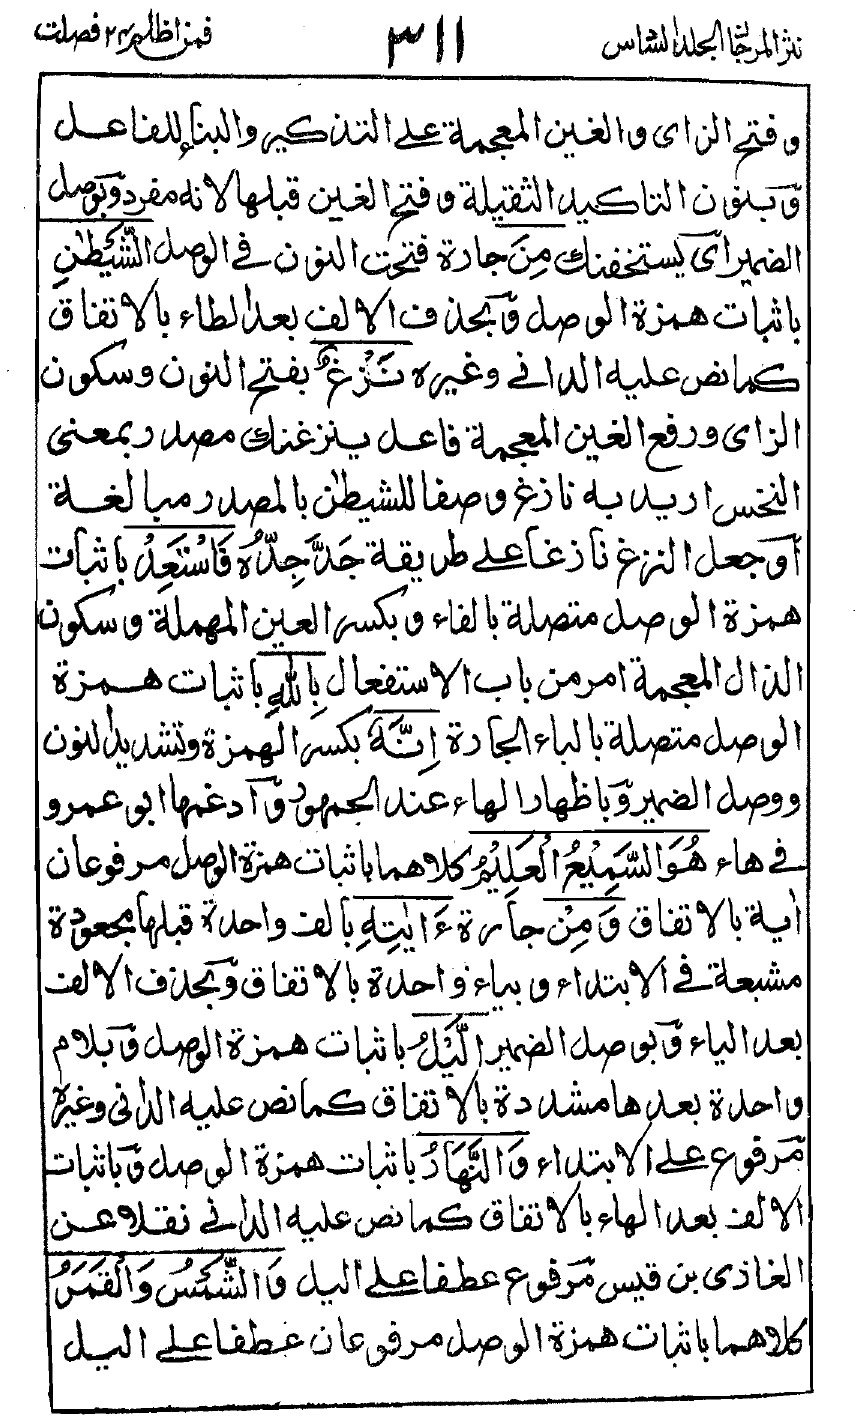 نثر المرجان الجلد السادس
٣١١
فمن اظلم ٢٤ فصلت
و فتح الزاى والغين المعجمة على التذكير والبناء للفاعل
وَبنون التاكيد الثقيلة و فتح الغين قبلها لانه مفرد وَبوصل
الضمير اى يستخفنك مِنَ جارة فتحت النون فى الوصل الشَّيْطٰنِ
باثبات همزة الوصل وَبحذف الالف بعد الطاء بالاتفاق
كما نص عليه الدانى وغيره نَزْغٌ بفتح النون وسكون
الزاى ورفع الغين المعجمة فاعل ينزغنك مصدر بمعنى
النخس اريد به نازغ وصفا للشيطٰن بالمصدر مبالغة
اَوجعل النزغ نازغا على طريقة جَدَّ جِدُّهٗ فَاسْتَعِذْ باثبات
همزة الوصل متصلة بالفاء وبكسر العين المهملة وسكون
الذال المعجمة امر من باب الاستفعال بِاللّٰهِ باثبات همزة
الوصل متصلة بالباء الجارة اِنَّهٗ بكسر الهمزة وتشديد النون
ووصل الضمير وَباظهار الهاء عند الجمهور وَاَدغمها ابو عمرو
فى هاء هُوَ السَّمِيْعُ الْعَلِيْمُ كلاهما باثبات همزة الوصل مرفوعان
اٰية بالاتفاق وَمِنْ جارة ءَايٰتِهٖ بالف واحدة قبلها مجعودة
مشبعة فى الابتداء وبياء واحدة بالاتفاق وَبحذف الالف
بعد الياء وَبوصل الضمير الَّيْلُ باثبات همزة الوصل وَبلام
واحدة بعدها مشددة بالاتفاق كما نص عليه الدانى وغيره
مَرفوع على الابتداء وَالنَّهَارُ باثبات همزة الوصل وَباثبات
الالف بعد الهاء بالاتفاق كما نص عليه الدانى نقلا عن
الغازى بن قيس مَرفوع عطفا على اليل وَالشَّمْسُ وَالْقَمَرُ
كلاهما باثبات همزة الوصل مرفوعان عطفا على اليل